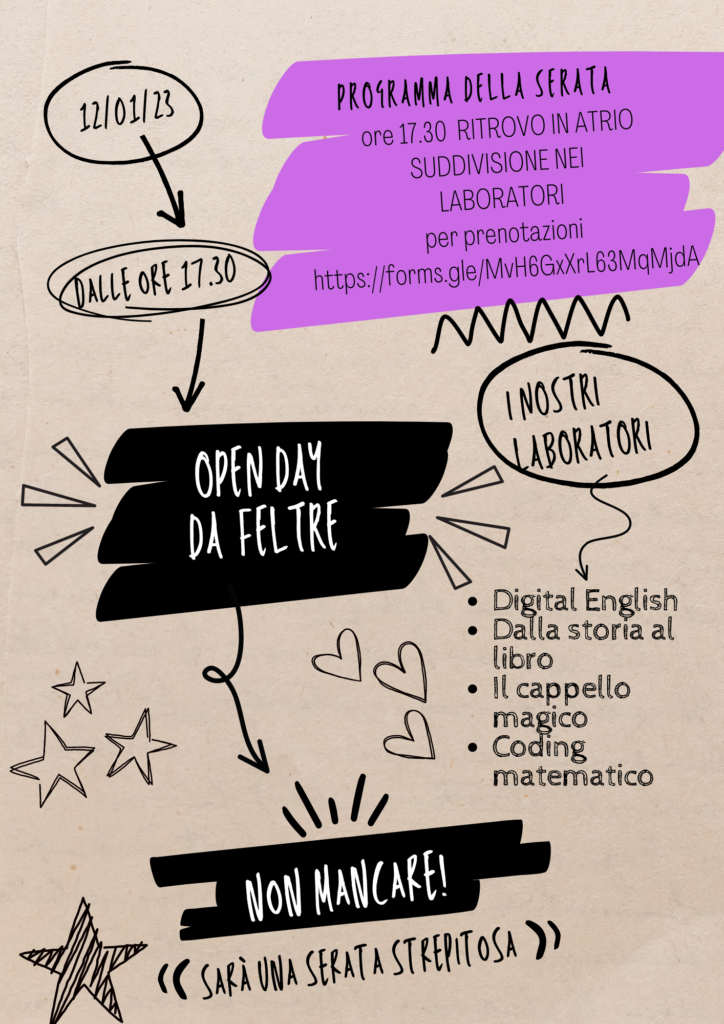 12/01/23
DALLE ORE 17.30
PROGRAMMA DELLA SERATA
ore 17.30 RITROVO IN ATRIO
SUDDIVISIONE NEI
LABORATORI
per prenotazioni
https://forms.gle/MvH6GxXrL63MqMjdA
OPEN DAY
DA FELTRE
I NOSTRI
LABORATORI
• Digital English
• Dalla storia al
libro
• Il cappello
magico
• Coding
matematico
NON MANCARE!
SARÀ UNA SERATA STREPITOSA